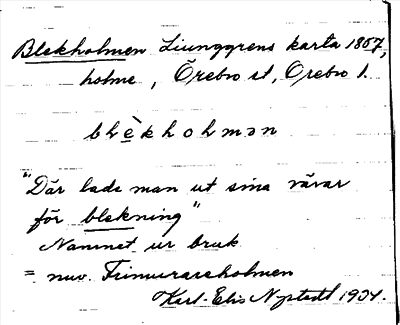 Blekholmen Ljunggrens karta 1857,
holme, Örebro st, Örebro l.
blèkholmən
"Där lade man ut sina vävar
för blekning"
Namnet ur bruk
= nuv. Frimurareholmen
Karl-Elis Nystedt 1934.